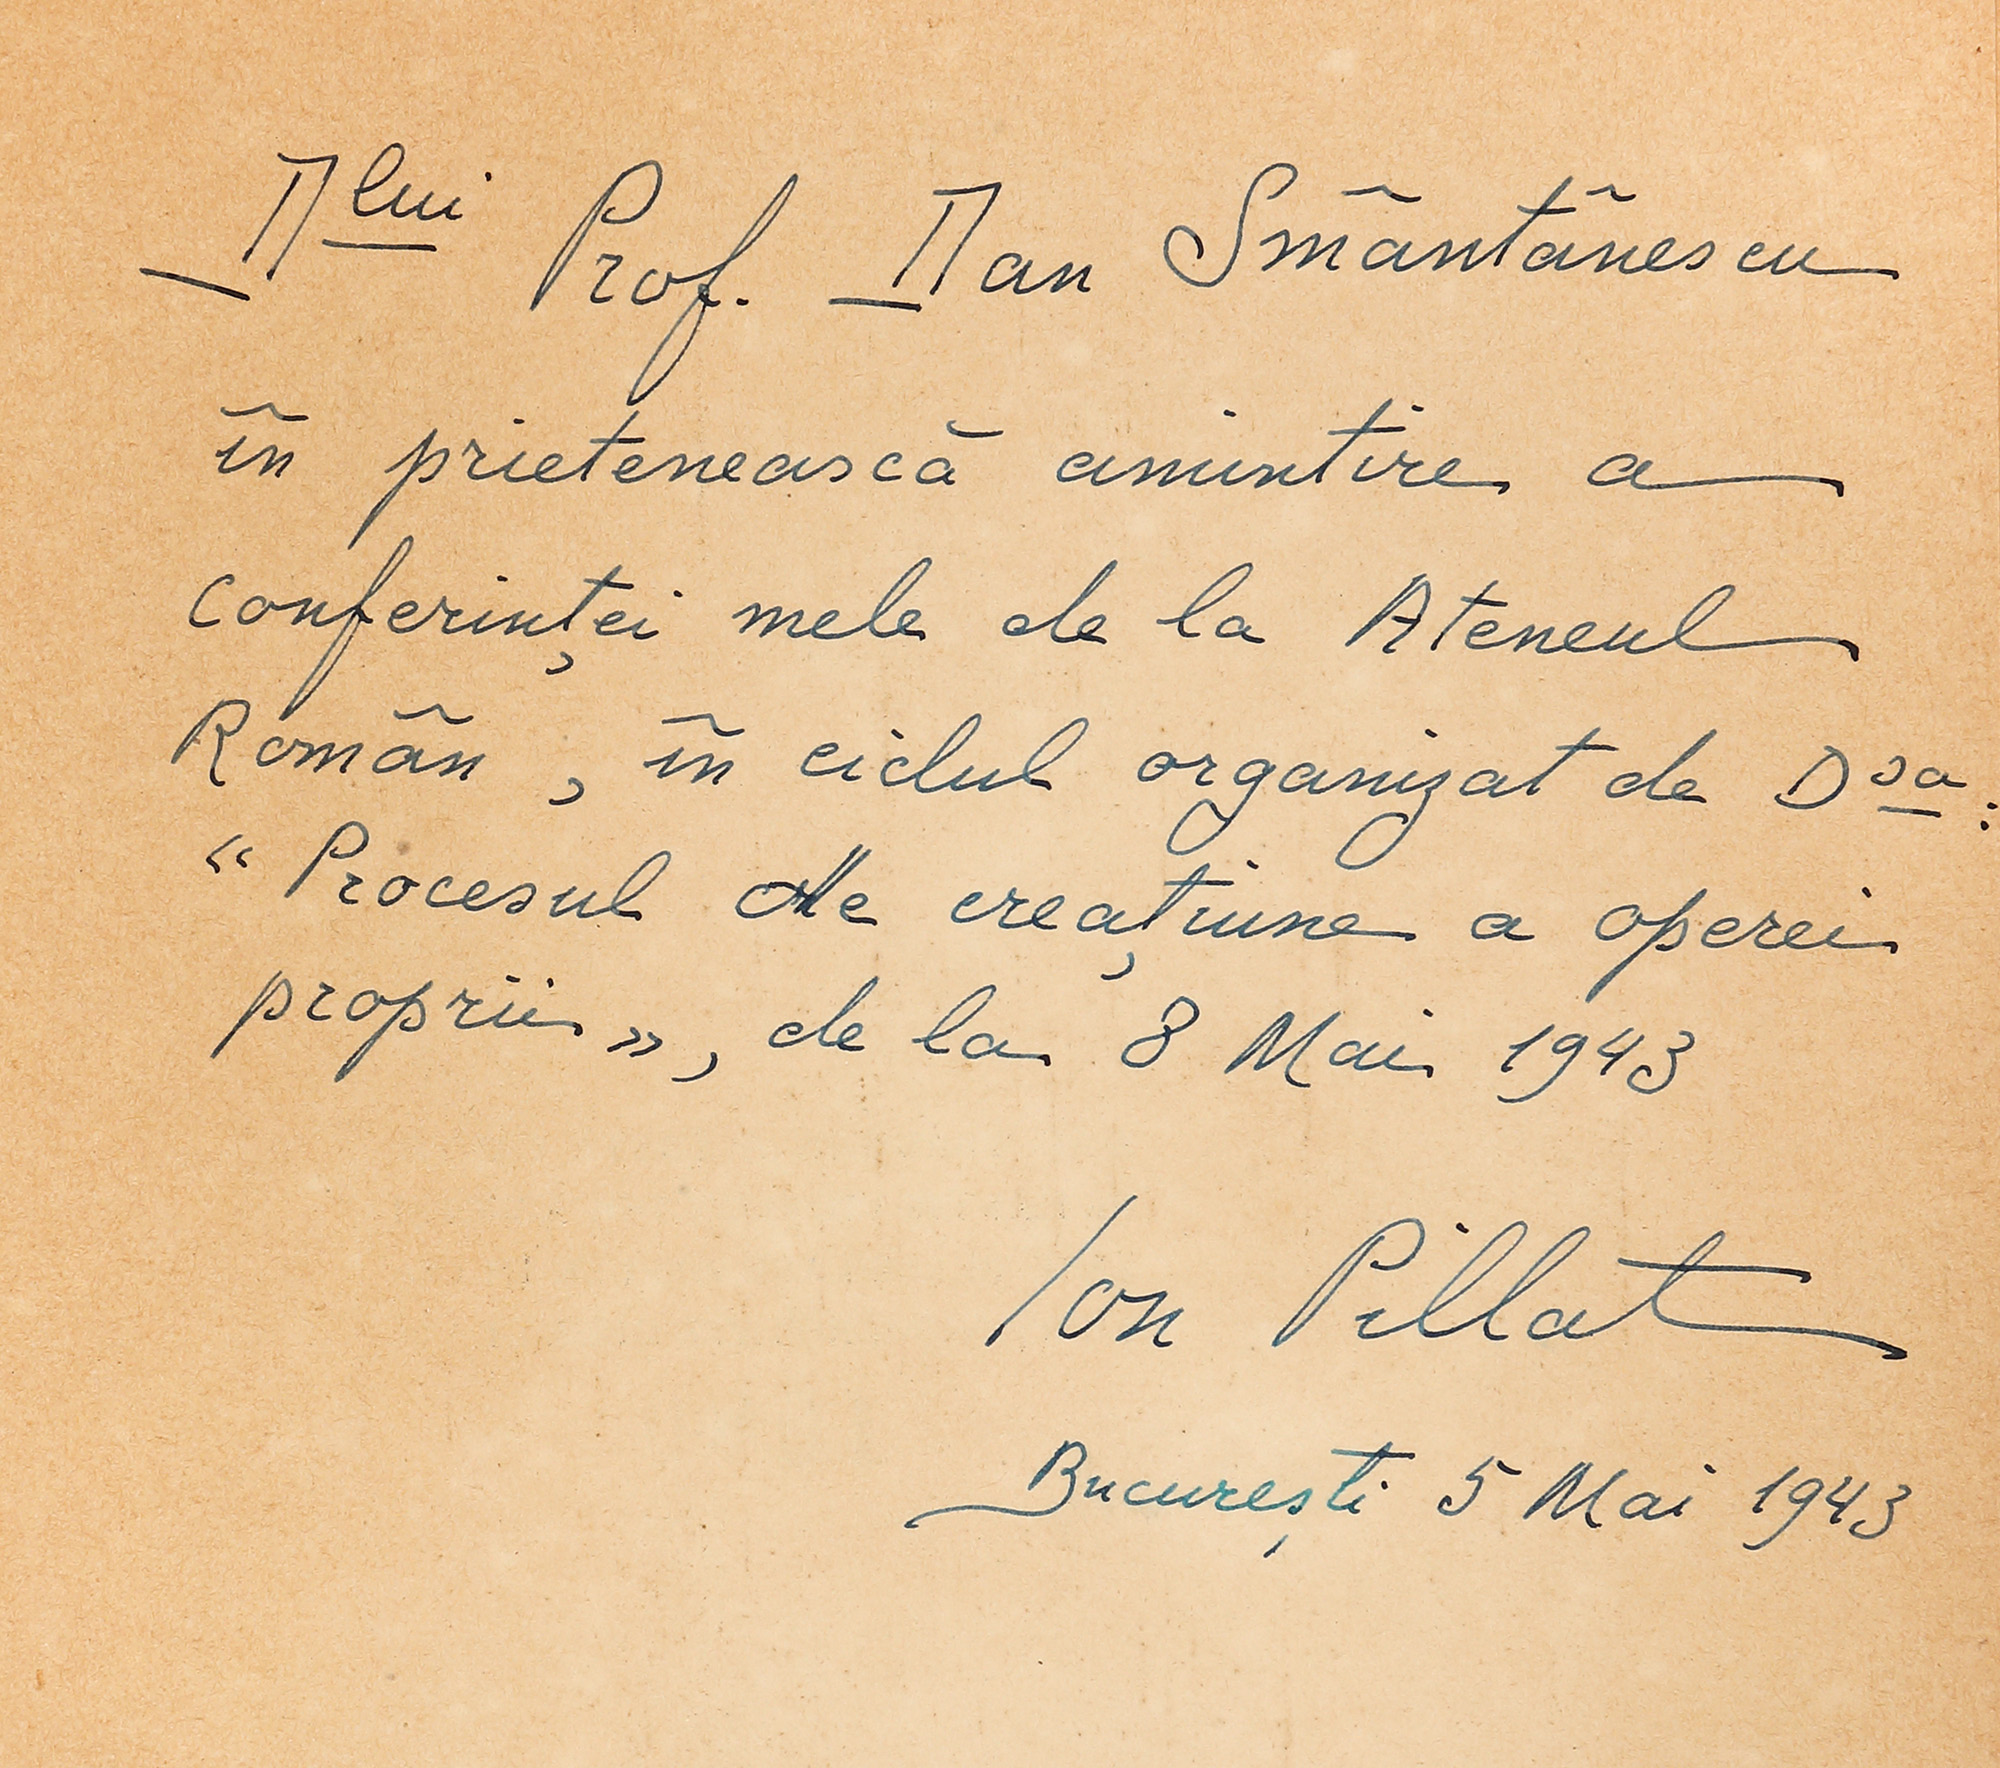 Dlui Prof. Dan Smântânescu
în prietenească amintire a
conferinței mele de la Ateneul
Român, în ciclul organizat de Dsa:
« Procesul de creațiune a operei
proprii », de la 8 Mai 1943
Ion Pillat
București 5 Mai 1943